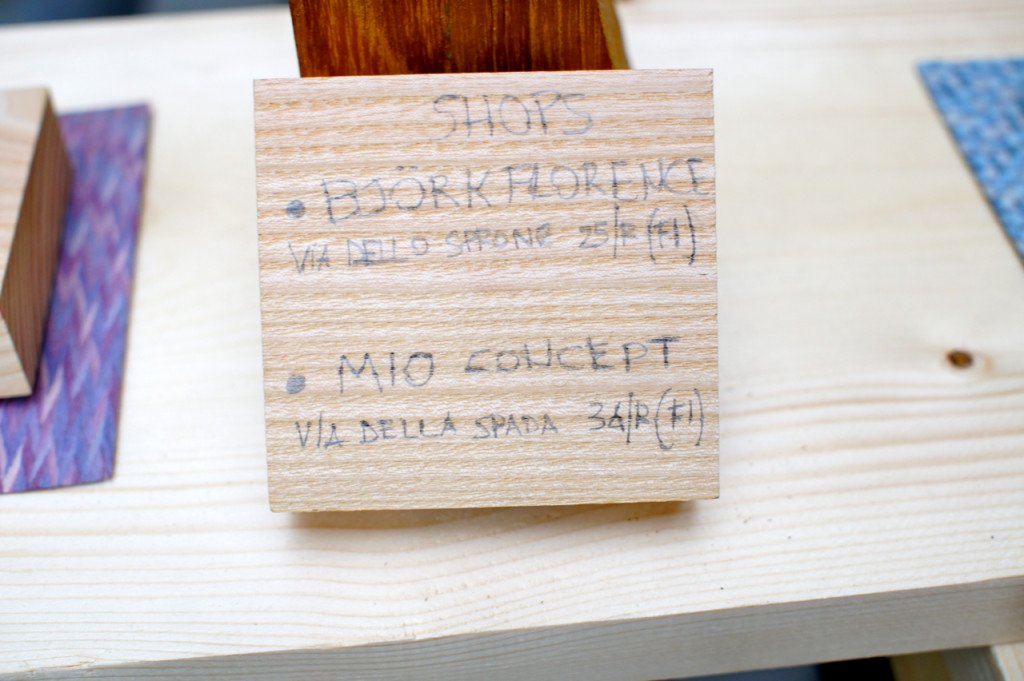 SHOPS
• BJÖRK FLORENCE
VIA DELLO SPRONE 25/R (FI)
• MIO CONCEPT
VIA DELLA SPADA 34/R (FI)